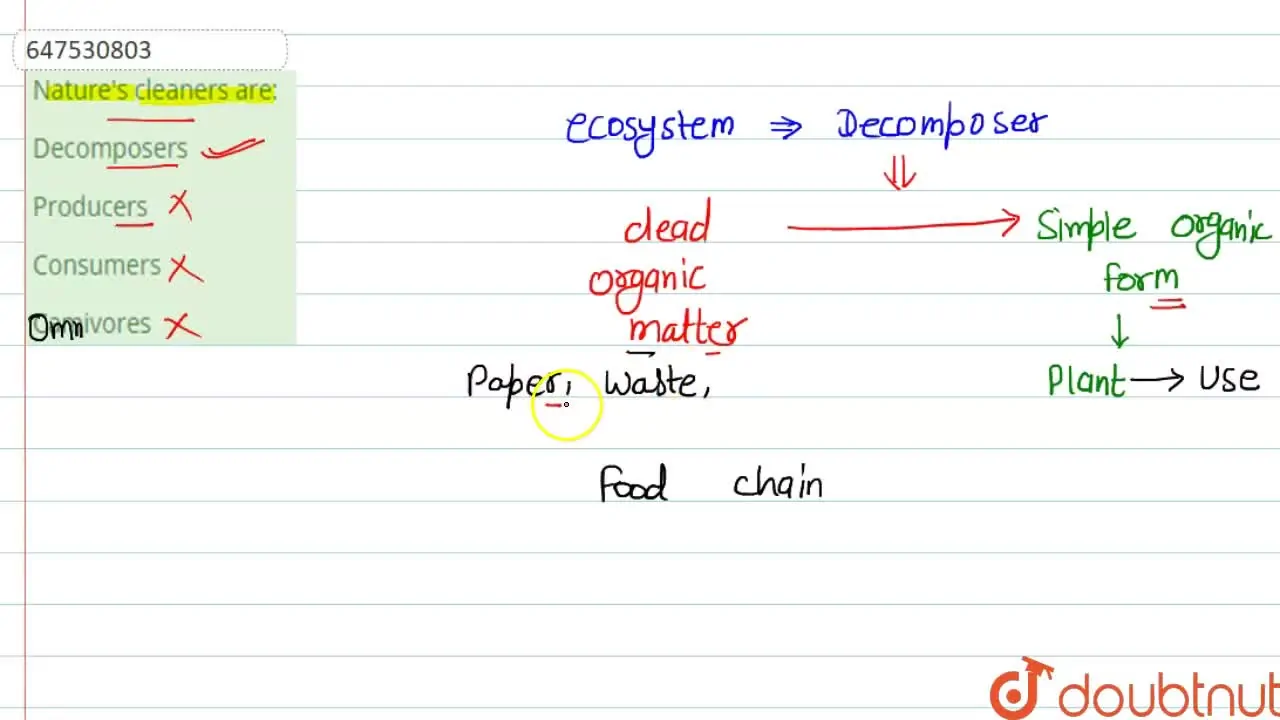 647530803
Nature's cleaners are:
Decomposers
Producers
Consumers
Omnivores
ecosystem ⇒ Decomposer
dead → Simple organic
organic form
matter
Paper, Waste, Plant → Use
Food chain
doubtnut